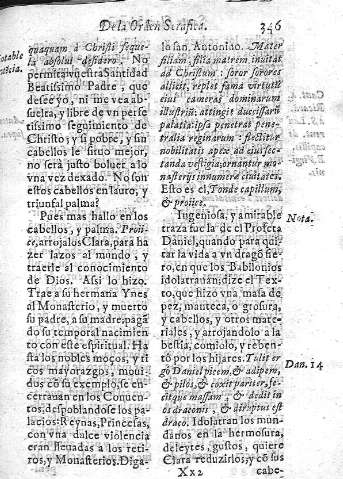 De la Orden Serafica. 346
Notable
quaquam à Christi seque-
la absolui desidero. No
permita vuestra Santidad
Beatissimo Padre, que
desee yo, ni me vea ab-
suelta, y libre de vn perfe
tissimo seguimiento de
Christo; y si pobre, y sin
cabellos le sirvo mejor,
no serà justo boluer a lo
vna vez dexado. No son
estos cabellos en lauro, y
triunfal palma?
Pues mas hallo en los
cabellos, y palma. Proii-
ce, arrojalos Clara, para ha
zer lazos al mundo, y
traerle al conocimiento
de Dios. Assi lo hizo.
Trae a su hermana Ynes
al Monasterio, y muerto
su padre, a su madre, pagã
do su temporal nacimien
to con este espiritual. Ha
sta los nobles moços, y ri
cos mayorazgos, moui-
dos cõ su exemplo, se en-
cerrauan en los Conuen-
tos, despoblandose los pa
lacios: Reynas, Princesas,
con vna dulce violencia
eran lleuadas a los reti-
ros, y Monasterios. Diga-
lo san Antonino. Mater
filiam, filia matrem inuitat
ad Christum: soror sorores
allicit, replet fama virtutis
eius cameras dominarum
illustriũ: attingit ducissarũ
palatia: ipsa penetrat pene-
tralia reginarum: flectitur
nobilitatis apex ad eius sec-
tanda vestigia, ornantur mo-
nasterijs innumere ciuitates.
Esto es el, Tonde capillum,
& proiice.
Ingeniosa, y admirable
traza fue la de el Profeta
Daniel, quando para qui-
tar la vida a vn dragõ fie-
ro, en que los Babilonios
idolatrauan; dize el Tex-
to, que hizo vna masa de
pez, manteca, o grosura,
y cabellos, y otros mate-
riales, y arrojandolo a la
bestia, comiolo, y reben-
tò por los hijares. Tulit er-
gò Daniel picem, & adipem,
& pilos, & coxit pariter, fe-
citque massam, & dedit in
os draconis, & diruptus est
dracò. Idolatran los mun-
danos en la hermosura,
deleytes, gustos, quiere
Clara reduzirlos; y cõ sus
Nota.
Dan. 14
Xx2 cabe-